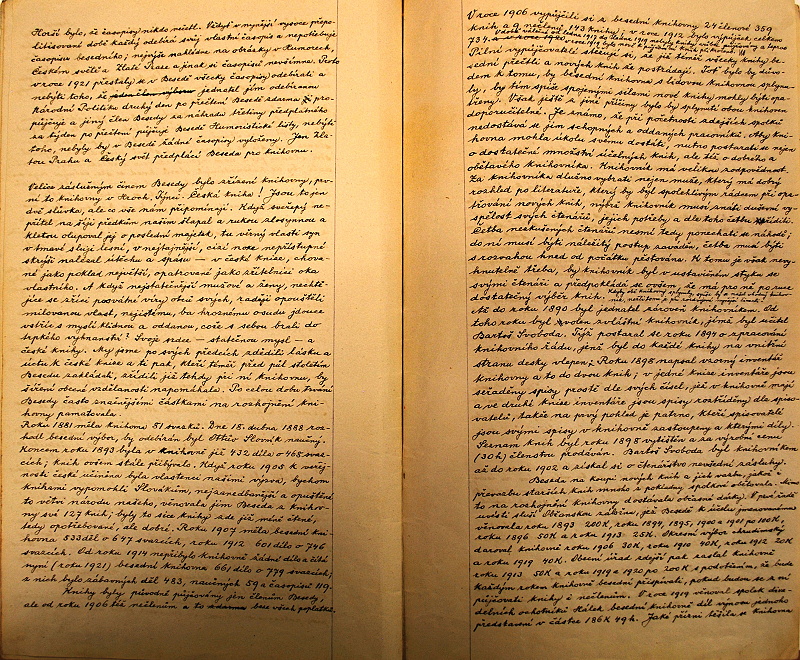 Horší bylo, že časopisy nikdo nečetl. Vždyť v nynější vysoce zpopo-
litisované době každý odebírá svůj vlastní časopis a nepotřebuje
časopisu besedního; nejvýše nahlédne na obrázky v Humorech,
Českém světě a Zlaté Praze a jinak si časopisů nevšimne. Proto
v roce 1921 přestaly v Besedě všecky časopisy odebírati a
nebýti toho, že jednatel jím odebíranou
Národní Politiku druhý den po přečtení Besedě zdarma pro-
půjčuje a jiný člen Besedy za náhradu třetiny předplatného
za týden po přečtení půjčuje Besedě Humoristické listy, nebylo
toho, nebyly by v Besedě žádné časopisy vyloženy. Jen Zla-
tou Prahu a Český svět předplácí Beseda pro knihovnu.
Velice záslužným činem Besedy bylo zřízení knihovny, prv-
ní to knihovny v Hroch. Týnci. Česká kniha! Jsou to jen
dvě slůvka, ale co vše nám připomínají. Když surěpý ne-
přítel na šíji předkům našem šlapal a rukou zlosynnou a
kletou olupoval jej o poslední majetek, tu věrný vlasti syn
v tmavé sluji lesní, v nejtajnější, cizí noze nepřístupné
skrýši nalézal útěchu a spásu — v české knize, chova-
né jako poklad největší, opatrované jako zřítelnice oka
vlastního. A když nejstatečnější mužové a ženy, nechtě-
jíce se zříci posvátné víry otců svých, raději opouštěli
milovanou vlast, nejistému, ba hroznému osudu jdouce
vstříc s myslí klidnou a oddanou, cože s sebou brali do
trpkého vyhnanství? Svoje srdce — statečnou mysl — a
české knihy. My jsme po svých předcích zdědili lásku a
úctu k české knize a ti pak, kteří téměř před půl stoletím
Besedu zakládali, zřídili již tehdy při ní knihovnu, by
šíření obecné vzdělanosti napomáhala. Po celou dobu trvání
Besedy často značnějšími částkami na rozhojnění kni-
hovny pamatováno.
Roku 1881 měla knihovna 51 svazků. Dne 15. dubna 1888 roz-
hodl besední výbor, by odebírán byl Ottův Slovník naučný.
Koncem roku 1893 byla v knihovně již 432 díla o 468 svaz-
cích; knih ovšem stále přibývalo. Když roku 1903 k veřej-
nosti české učiněna byla vlastenci našimi výzva, bychom
knihami vypomohli Slovákům, nejzanedbanější a opuštěné
to větvi národu našeho, věnovala jim Beseda z knihov-
ny své 127 knih; byly to sice knihy zde již méně čtené,
tedy opotřebované, ale dobré. Roku 1907 měla besední kni-
hovna 533 děl o 647 svazcích, roku 1912 601 dílo o 746
svazcích. Od roku 1914 nepřibylo knihovně žádné dílo a čítá
nyní (roku 1921) besední knihovna 661 dílo o 779 svazcích;
z nich bylo zábavných děl 483, naučných 59 a časopisů 119.
Knihy byly původně půjčovány jen členům Besedy,
ale od roku 1906 též nečlenům a to beze všech poplatků.
V roce 1906 vypůjčili si z besední knihovny 24 členové 359
knih a 9 nečlenů 143 knihy; v roce 1912 bylo výpůjček celkem
734.
Pilní vypůjčovatelé stěžují si, že již téměř všecky knihy be-
sední přečtli a nových knih že postrádají. Toť bylo by důvo-
dem k tomu, by besední knihovna s lidovou knihovnou splynu-
ly, by tím spíše spojenými silami nové knihy mohly býti opa-
třeny. Však ještě z jiné příčiny bylo by splynutí obou knihoven
doporučitelné. Je známo, že při početnosti zdejších spolků
nedostává se jim schopných a oddaných pracovníků. Aby kni-
hovna mohla úkolu svému dostáti, nutno postarati se nejen
o dostatečné množství účelných knih, ale též o dobrého a
obětavého knihovníka. Knihovník má velikou zodpovědnost.
Za knihovníka dlužno vybrati nejen muže, který má dobrý
rozhled po literatuře, který by byl spolehlivým rádcem při opa-
třování nových knih, nýbrž knihovník musí znáti duševní vy-
spělost svých čtenářů, jejich potřeby a dle toho četbu říditi.
Četba nezkušených čtenářů nesmí tedy ponechati se náhodě;
do ní musí býti náležitý postup zaváděn, četba musí býti
s rozvahou hned od počátku pěstována. K tomu je však nevy-
hnutelně třeba, by knihovník byl v ustavičném styku se
svými čtenáři a předpokládá se ovšem, že má pro ně po ruce
dostatečný výběr knih.
Až do roku 1890 byl jednatel zároveň knihovníkem. Od
toho roku byl zvolen zvláštní knihovník, jímž byl učitel
Bartoš Svoboda. Týž postaral se roku 1894 o vypracování
knihovního řádu, jenž byl do každé knihy na vnitřní
stranu desky vlepen; Roku 1898 napsal vzorný inventář
knihovny a to do dvou knih; v jedné knize inventáře jsou
seřaděny spisy prostě dle svých čísel, jež v knihovně mají
a ve druhé knize inventáře jsou spisy roztříděny dle spiso-
vatelů, takže na prvý pohled je patrno, kteří spisovatelé
jsou svými spisy v knihovně zastoupeny a kterými díly.
Seznam knih byl roku 1898 vytištěn a za výrobní cenu
(30 h) členstvu prodáván. Bartoš Svoboda byl knihovníkem
až do roku 1902 a získal si o čtenářstvo nevšední zásluhy.
Beseda na koupi nových knih a jich vazbu, jakož i
převazbu starších knih mnoho z pokladny spolkové obětovala. Mimo
to na rozhojnění knihovny dostávala občasné dárky. V prvé řadě
uvésti sluší Občanskou záložnu, jež Besedě k účelu jmenovanému
věnovala roku 1893 200 K, roku 1894, 1895, 1900 a 1901 po 100 K,
roku 1896 50 K a roku 1913 25 K. Okresní výbor chrudimský
daroval knihovně roku 1906 30 K, roku 1910 40 K, roku 1912 20 K
a roku 1919 40 K. Obecní úřad zdejší pak zaslal knihovně
roku 1913 50 K a roku 1919 a 1920 po 200 K s podotknutím, že bude
každým rokem knihovně besední přispívati, pokud budou se z ní
půjčovati knihy i nečlenům. V roce 1919 věnoval spolek diva-
delních ochotníků Hálek besední knihovně díl výnosu jednoho
představení v částce 186 K 49 h. Jaké přízni těšila se knihovna